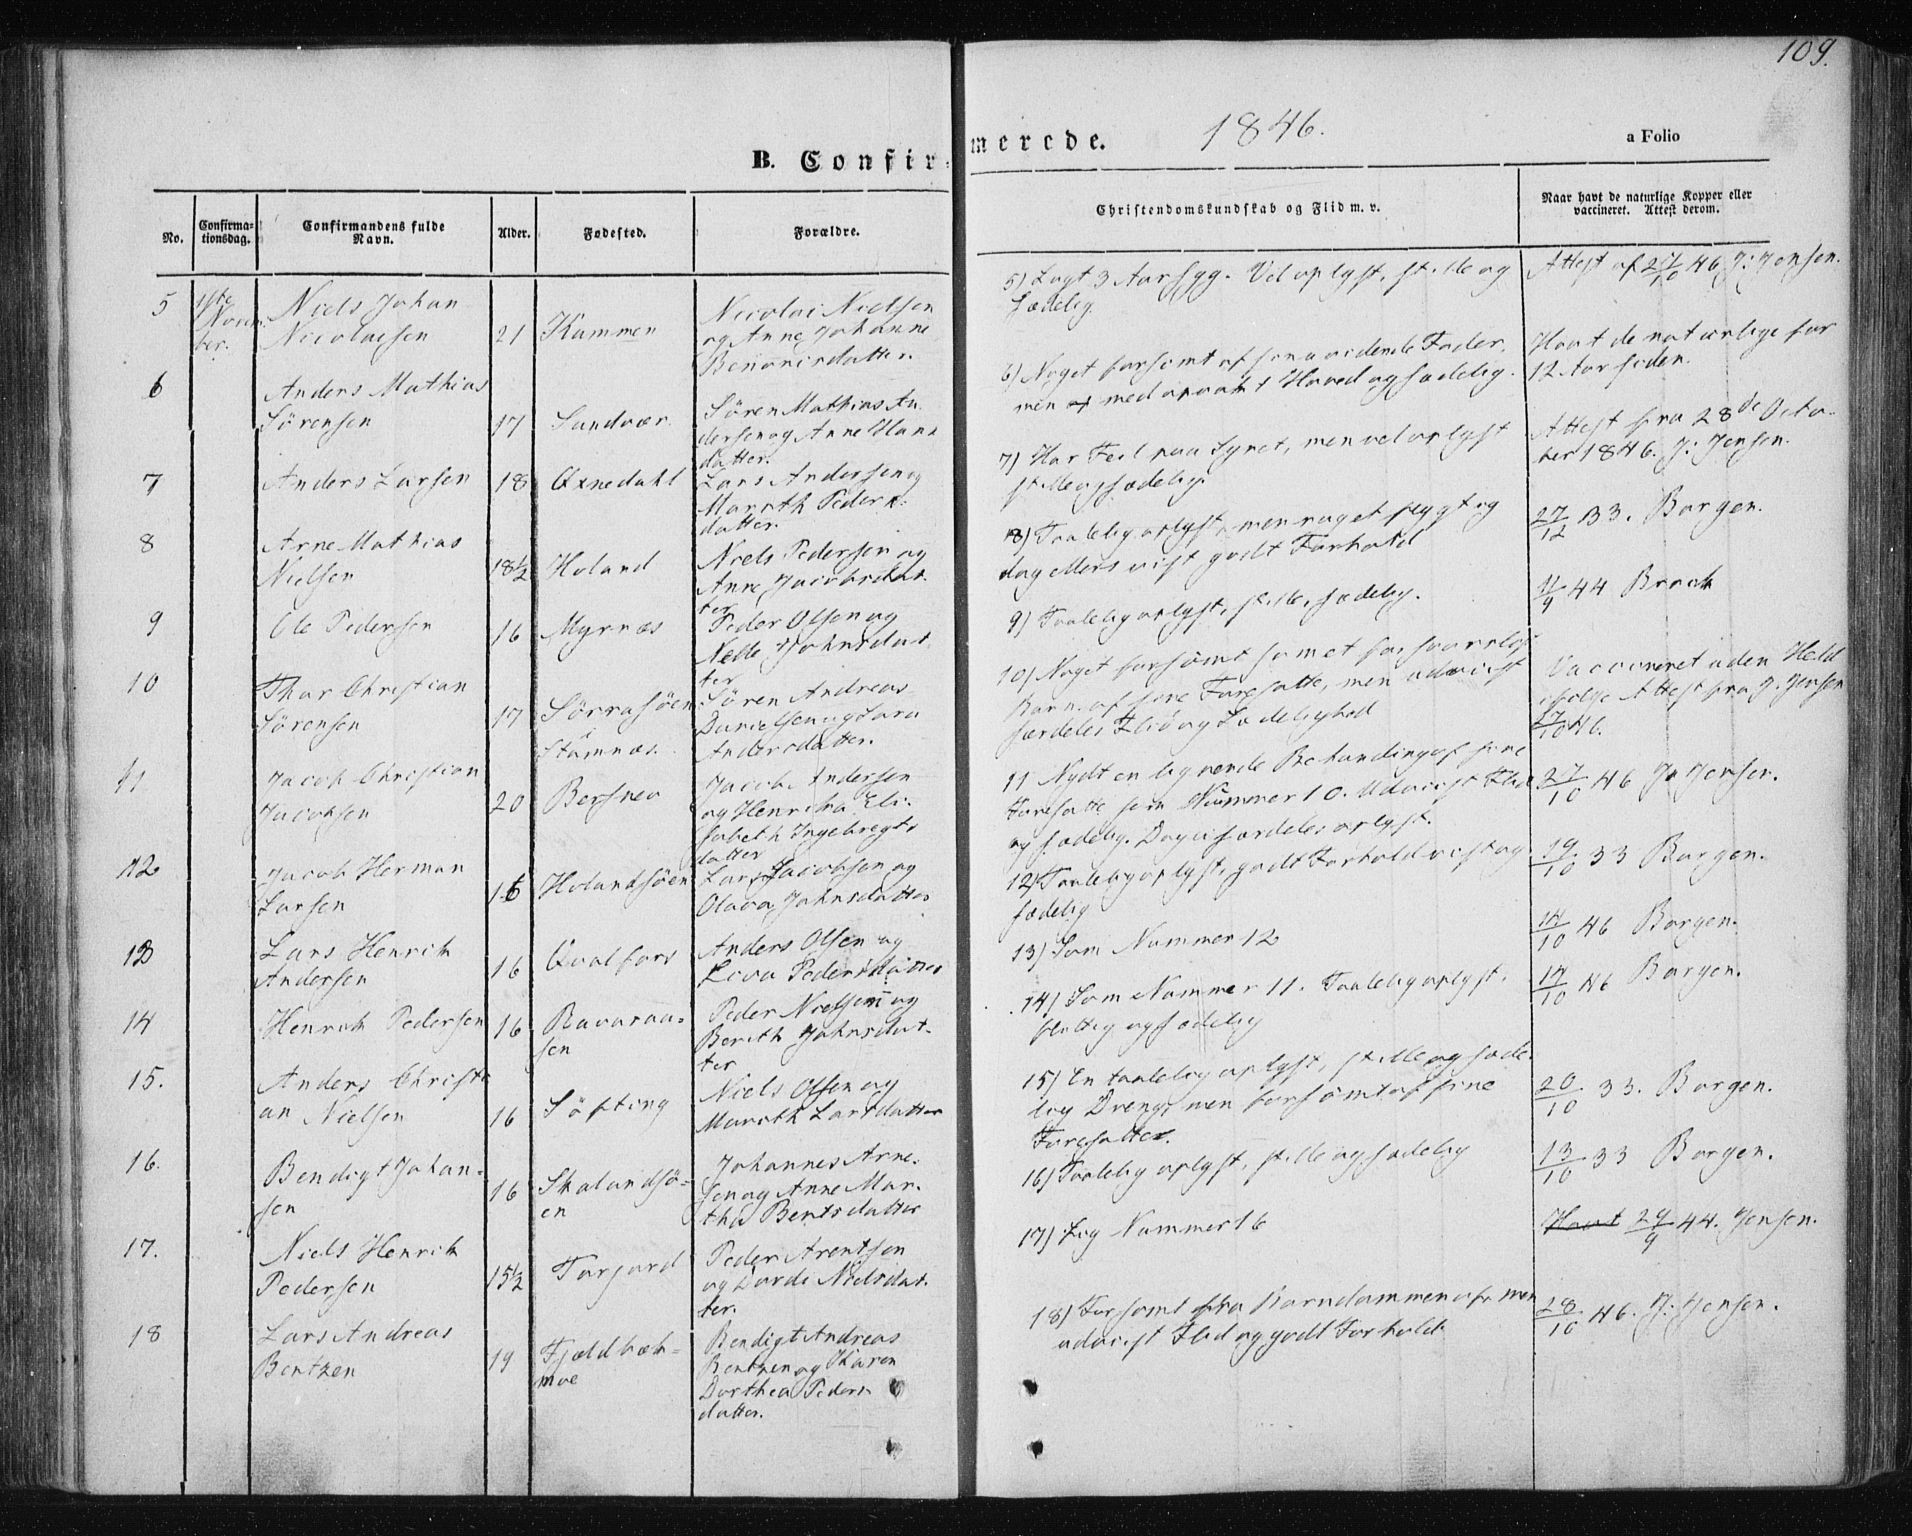 109.
B. Confir-
merede.
1846.
a Folio
No.
Confirma-
tionsdag.
Confirmandens fulde
Navn.
Alder.
Fødested.
Forældre.
Christendomskundskab og Flid m. v.
Naar havt de naturlige Kopper eller
vaccineret. Attest derom.
5
1ste
Novem-
ber.
Niels Johan
Nicolaisen
21
Kummen
Nicolai Nielsen
og Anne Johanne
5) Lagt 3 Aar syg. Vel oplyst, stille og
sædelig.
Attest af 27/10 46 J: Jensen.
6
Anders Mathias
Sörensen
17
Sandvær
Sören Mathias An-
dersen og Anne Hans
datter.
6) Noget forsömt af sin Fader,
men med Hoved og sædelig.
Havt de naturlige for
12 Aar siden.
7
Anders Larsen
18
Oxnedahl
Lars Andersen og
Marith Peders-
datter.
7) Har Feil paa Synet, men vel oplyst
stille og sædelig.
Attest fra 28de Octo-
ber 1846. J: Jensen.
8
Arne Mathias
Nielsen
18½
Holand
Niels Pedersen og
Anne Jacobsdat-
ter
8) Taalelig oplyst, men noget flygtig
dog ellers vist godt Forhold
27/12 33. Borgen.
9
Ole Pedersen
16
Myrnæs
Peder Olsen og
Nelle Johnsdat
ter
9) Taalelig oplyst, stille, sædelig.
11/9 44 Brock
10
Thor Christian
Sörensen
17
Sörrasöen
Stamnæs.
Sören Andreas
Danielsen og Sara
Andersdatter.
10) Noget forsömt som et
Barn af sine Foresatte, men udviist
særdeles Flid og Sædelighed
Vaccineret uden Held
ifölge Attest fra J. Jensen
27/10 46.
11.
Jacob Christian
Jacobsen
20
Bersneo
Jacob Andersen
og Henrika Eli-
sabeth Ingebregts
datter
11 Nydt en lignende Behandling af sine
Foresatte som Nummer 10. Udviist Flid
og sædelig. Dog ei særdeles oplyst.
27/10 46 J. Jensen.
12
Jacob Herman
Larsen
16
Holandsöen
Lars Jacobsen og
Olava Johnsdatter
12) Taalelig oplyst, godt Forhold vist og
sædelig
19/10 33 Borgen.
13
Lars Henrik
Andersen
16
Qvalfors
Anders Olsen og
Lova Pedersdatter
13) Som Nummer 12
14/10 46 Borgen.
14
Henrik Pedersen
16
Ravaraa-
sen
Peder Nielsen og
Berith Johnsdat-
ter
14) Som Nummer 11. Taalelig oplyst,
flittig og sædelig
14/10 46 Borgen.
15.
Anders Christi
an Nielsen
16
Söfting
Niels Olsen og
Marith Larsdatter
15) En taalelig oplyst, stille og sæde-
lig Dreng, men forsömt af sine
Foresatte.
20/10 33. Borgen.
16.
Bendigt Johan-
sen
16
Skalandsö-
en
Johannes Arne-
sen og Anne Mar-
tha Bentsdatter
16) Taalelig oplyst, stille og sædelig
13/10 33 Borgen.
17.
Niels Henrik
Pedersen
15½
Forjord
Peder Arentsen
og Dorde Nielsdat-
ter.
17) Lig Nummer 16
Havt 29/9 44. Jensen.
18
Lars Andreas
Bentzen
19
Fjeldbæk-
moe
Bendigt Andreas
Bentzen og Karen
Dorthea Peders-
datter.
18) Forsömt fra Barndommen af, men
udviist Flid og godt Forhold
28/10 46. J: Jensen.